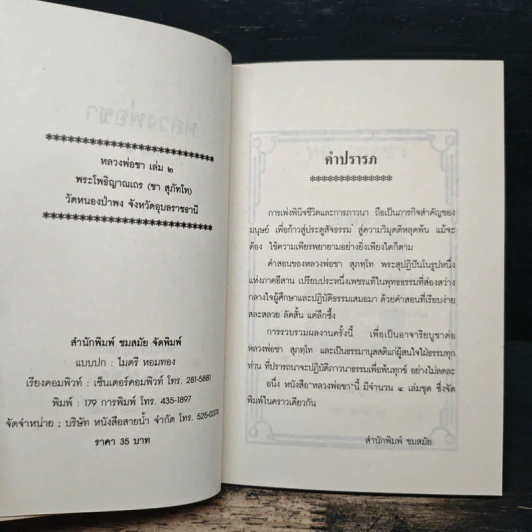 หลวงพ่อชา เล่ม ๒
พระโพธิญาณเถร (ชา สุภัทโท)
วัดหนองป่าพง จังหวัดอุบลราชธานี
สำนักพิมพ์ ชมสมัย จัดพิมพ์
แบบปก : ไมตรี หอมทอง
เรียงคอมพิวท์ : เซ็นเตอร์คอมพิวท์ โทร. 281-5681
พิมพ์ : 179 การพิมพ์ โทร. 435-1897
จัดจำหน่าย : บริษัท หนังสือสายน้ำ จำกัด โทร. 525-0374
ราคา 35 บาท
คำปรารภ
การเพ่งพินิจชีวิตและการภาวนา ถือเป็นภารกิจสำคัญของ
มนุษย์ เพื่อก้าวสู่ประตูสัจธรรม สู่ความวิมุตติหลุดพ้น แม้จะ
ต้อง ใช้ความเพียรพยายามอย่างยิ่งเพียงใดก็ตาม
คำสอนของหลวงพ่อชา สุภทฺโท พระสุปฏิปันโนรูปหนึ่ง
แห่งภาคอีสาน เปรียบประหนึ่งเพชรแท้ในพุทธธรรมที่ส่องสว่าง
กลางใจผู้ศึกษาและปฏิบัติธรรมเสมอมา ด้วยคำสอนที่เรียบง่าย
สละสลวย ลัดสั้น แต่ลึกซึ้ง
การรวบรวมผลงานครั้งนี้ เพื่อเป็นอาจาริยบูชาต่อ
หลวงพ่อชา สุภทฺโท และเป็นธรรมานุสสติแก่ผู้สนใจใฝ่ธรรมทุก
ท่าน ที่ปรารถนาจะปฏิบัติภาวนาธรรมเพื่อพ้นทุกข์ อย่างไม่ลดละ
อนึ่ง หนังสือ"หลวงพ่อชา"นี้ มีจำนวน ๔ เล่มชุด ซึ่งจัด
พิมพ์ในคราวเดียวกัน
สำนักพิมพ์ ชมสมัย